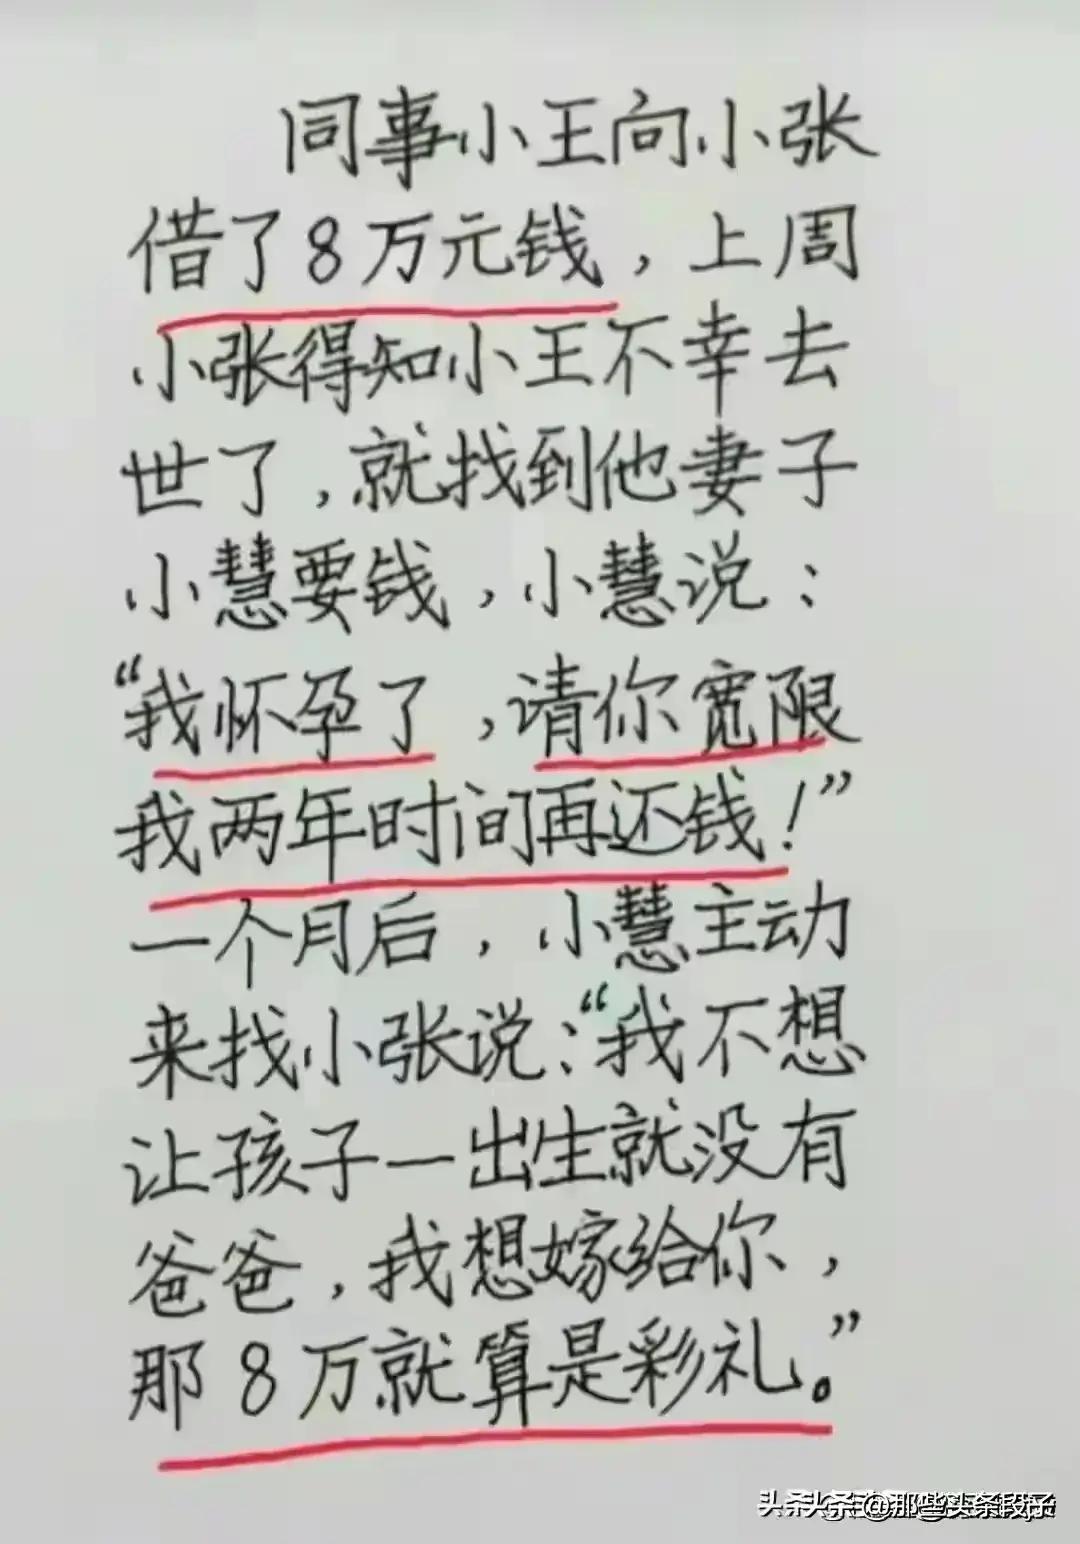 同事小王向小张
借了8万元钱，上周
小张得知小王不幸去
世了，就找到他妻子
小慧要钱，小慧说：
“我怀孕了，请你宽限
我两年时间再还钱！”
一个月后，小慧主动
来找小张说：“我不想
让孩子一出生就没有
爸爸，我想嫁给你，
那8万就算是彩礼。”
头条@那些头条段子